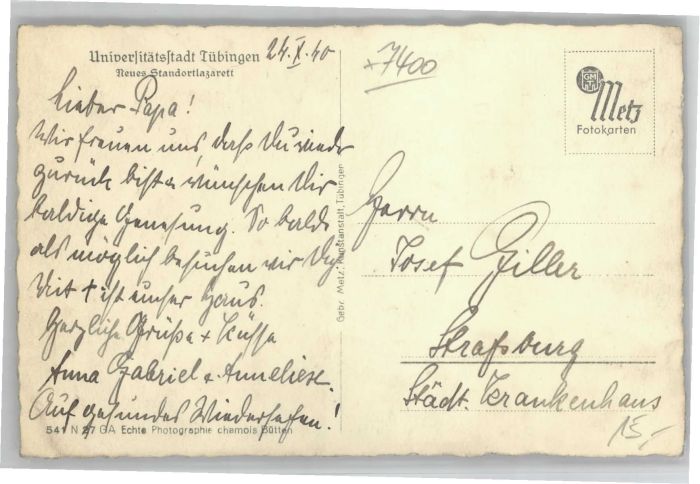 Universitätsstadt Tübingen 24.X.40
Neues Standortlazarett
Lieber Papa!
Wir freuen uns, daß Du wieder
zurück bist u. wünschen Dir
baldige Genesung. So bald
als möglich besuchen wir Dich.
Mit + ist unser Haus.
Herzliche Grüße + Küsse
Anna Gabriel u. Anneliese.
Auf gesundes Wiedersehen!
541 N 27 GA Echte Photographie chamois Bütten
Gebr. Metz, Kunstanstalt, Tübingen
x 7400
GMT
Metz
Fotokarten
Herrn
Josef Giller
Straßburg
Städt. Krankenhaus
15,-